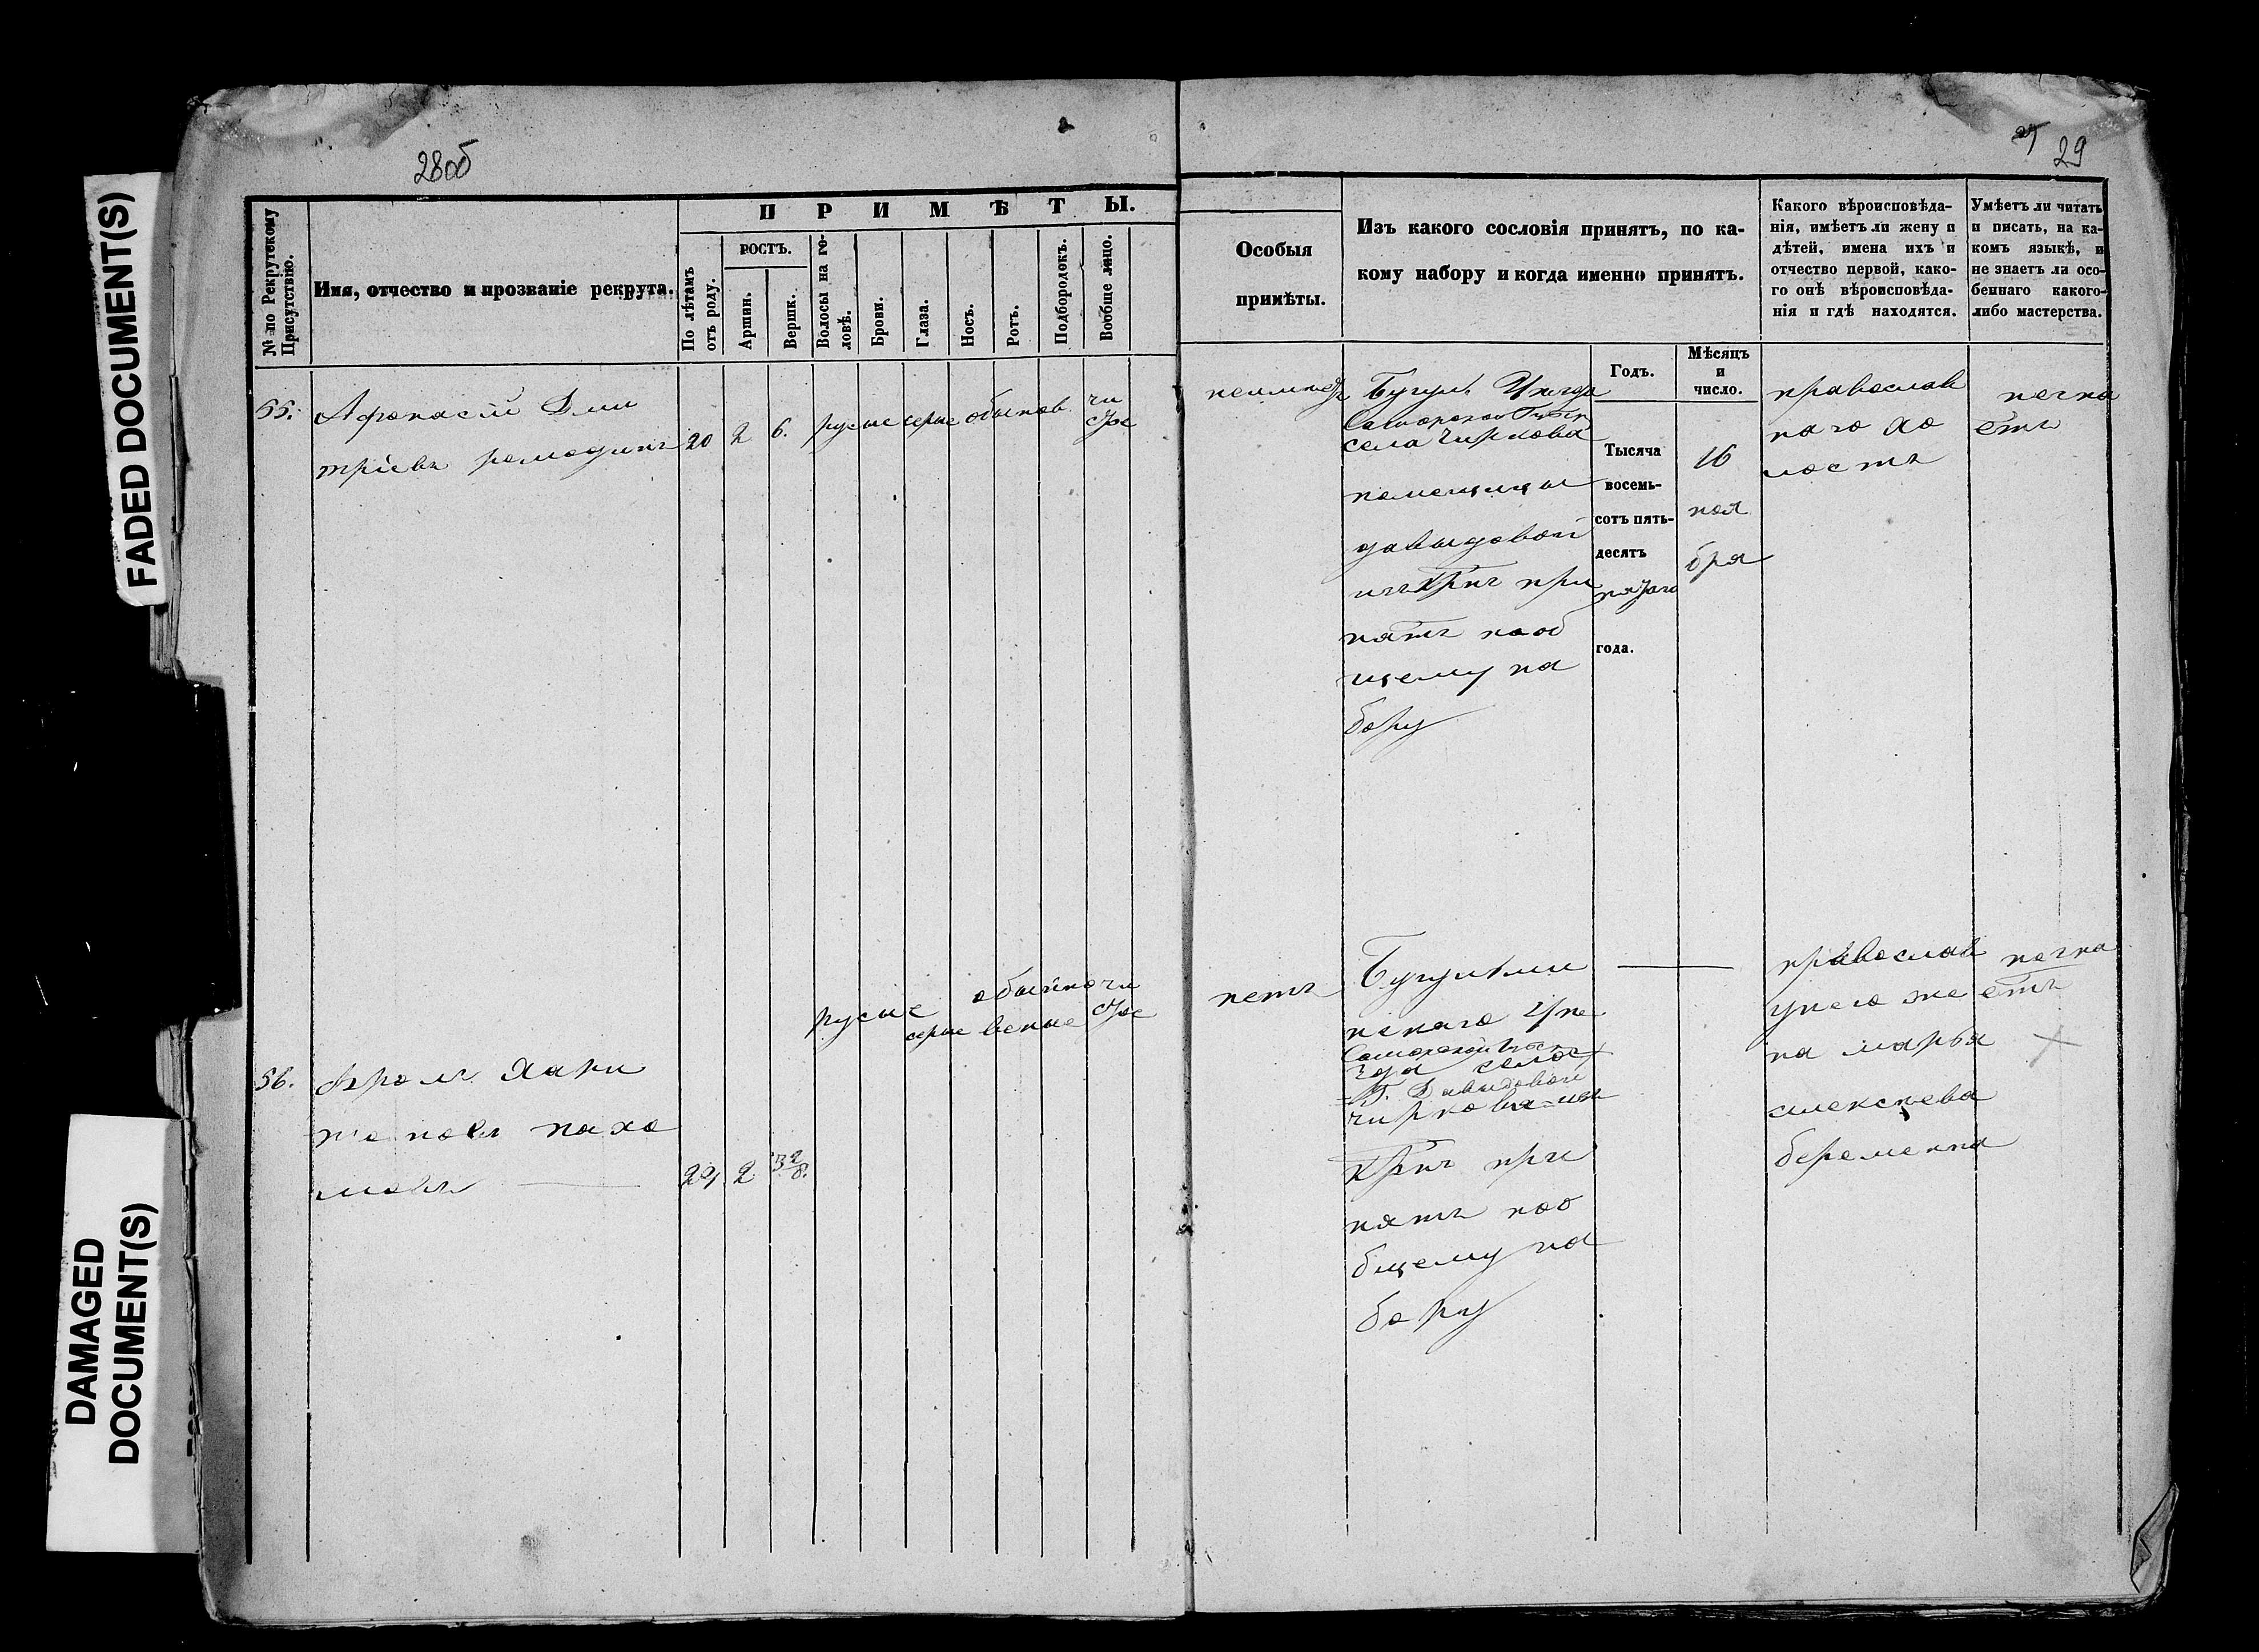 28об
29
FADED DOCUMENT(S)
DAMAGED
DOCUMENT(S)
№ по Рекрутскому
Присутствію.
Имя, отчество и прозваніе рекрута.
ПРИМѢТЫ.
По лѣтамъ
отъ роду.
РОСТЪ.
Аршин.
Вершк.
Волосы на го-
ловѣ.
Брови.
Глаза.
Носъ.
Ротъ.
Подбородокъ.
Вообще лицо.
Особыя
примѣты.
Изъ какого сословія принятъ, по ка-
кому набору и когда именно принятъ.
Какого вѣроисповѣда-
нія, имѣетъ ли жену и
дѣтей, имена ихъ и
отчество первой, како-
го онѣ вѣроисповѣда-
нія и гдѣ находятся.
Умѣетъ ли читать
и писать, на ка-
комъ языкѣ, и
не знаетъ ли осо-
беннаго какого-
либо мастерства.
Годъ.
Мѣсяцъ
и
число.
55.
Афонасій Дми
тріевъ ромодинъ
20
2
6.
русые
серые
обыков.
чи
стое
неимеетъ
Бугул. Уезда
Самарской Губерн
села Чиркова
помещицы
давыдовой
изъ Крнъ при
нятъ пооб
щему на
бору
Тысяча
восемь-
сотъ пять-
десятъ
пятаго
года.
16
ноя
бря
православ
наго хо
лостъ
незна
етъ
56.
Фролъ
новъ пахо
мовъ
24
2
3 2/8.
русые
серые
обыкно
венные
чи
стое
нетъ
Бугульми
нскаго Уез
Самарской Губерн
зда села
Г. Давыдовой
чиркова изъ
Крнъ при
нятъ поо
бщему на
бору
православ
унего же
на марья
алексеева
беременна
незна
етъ